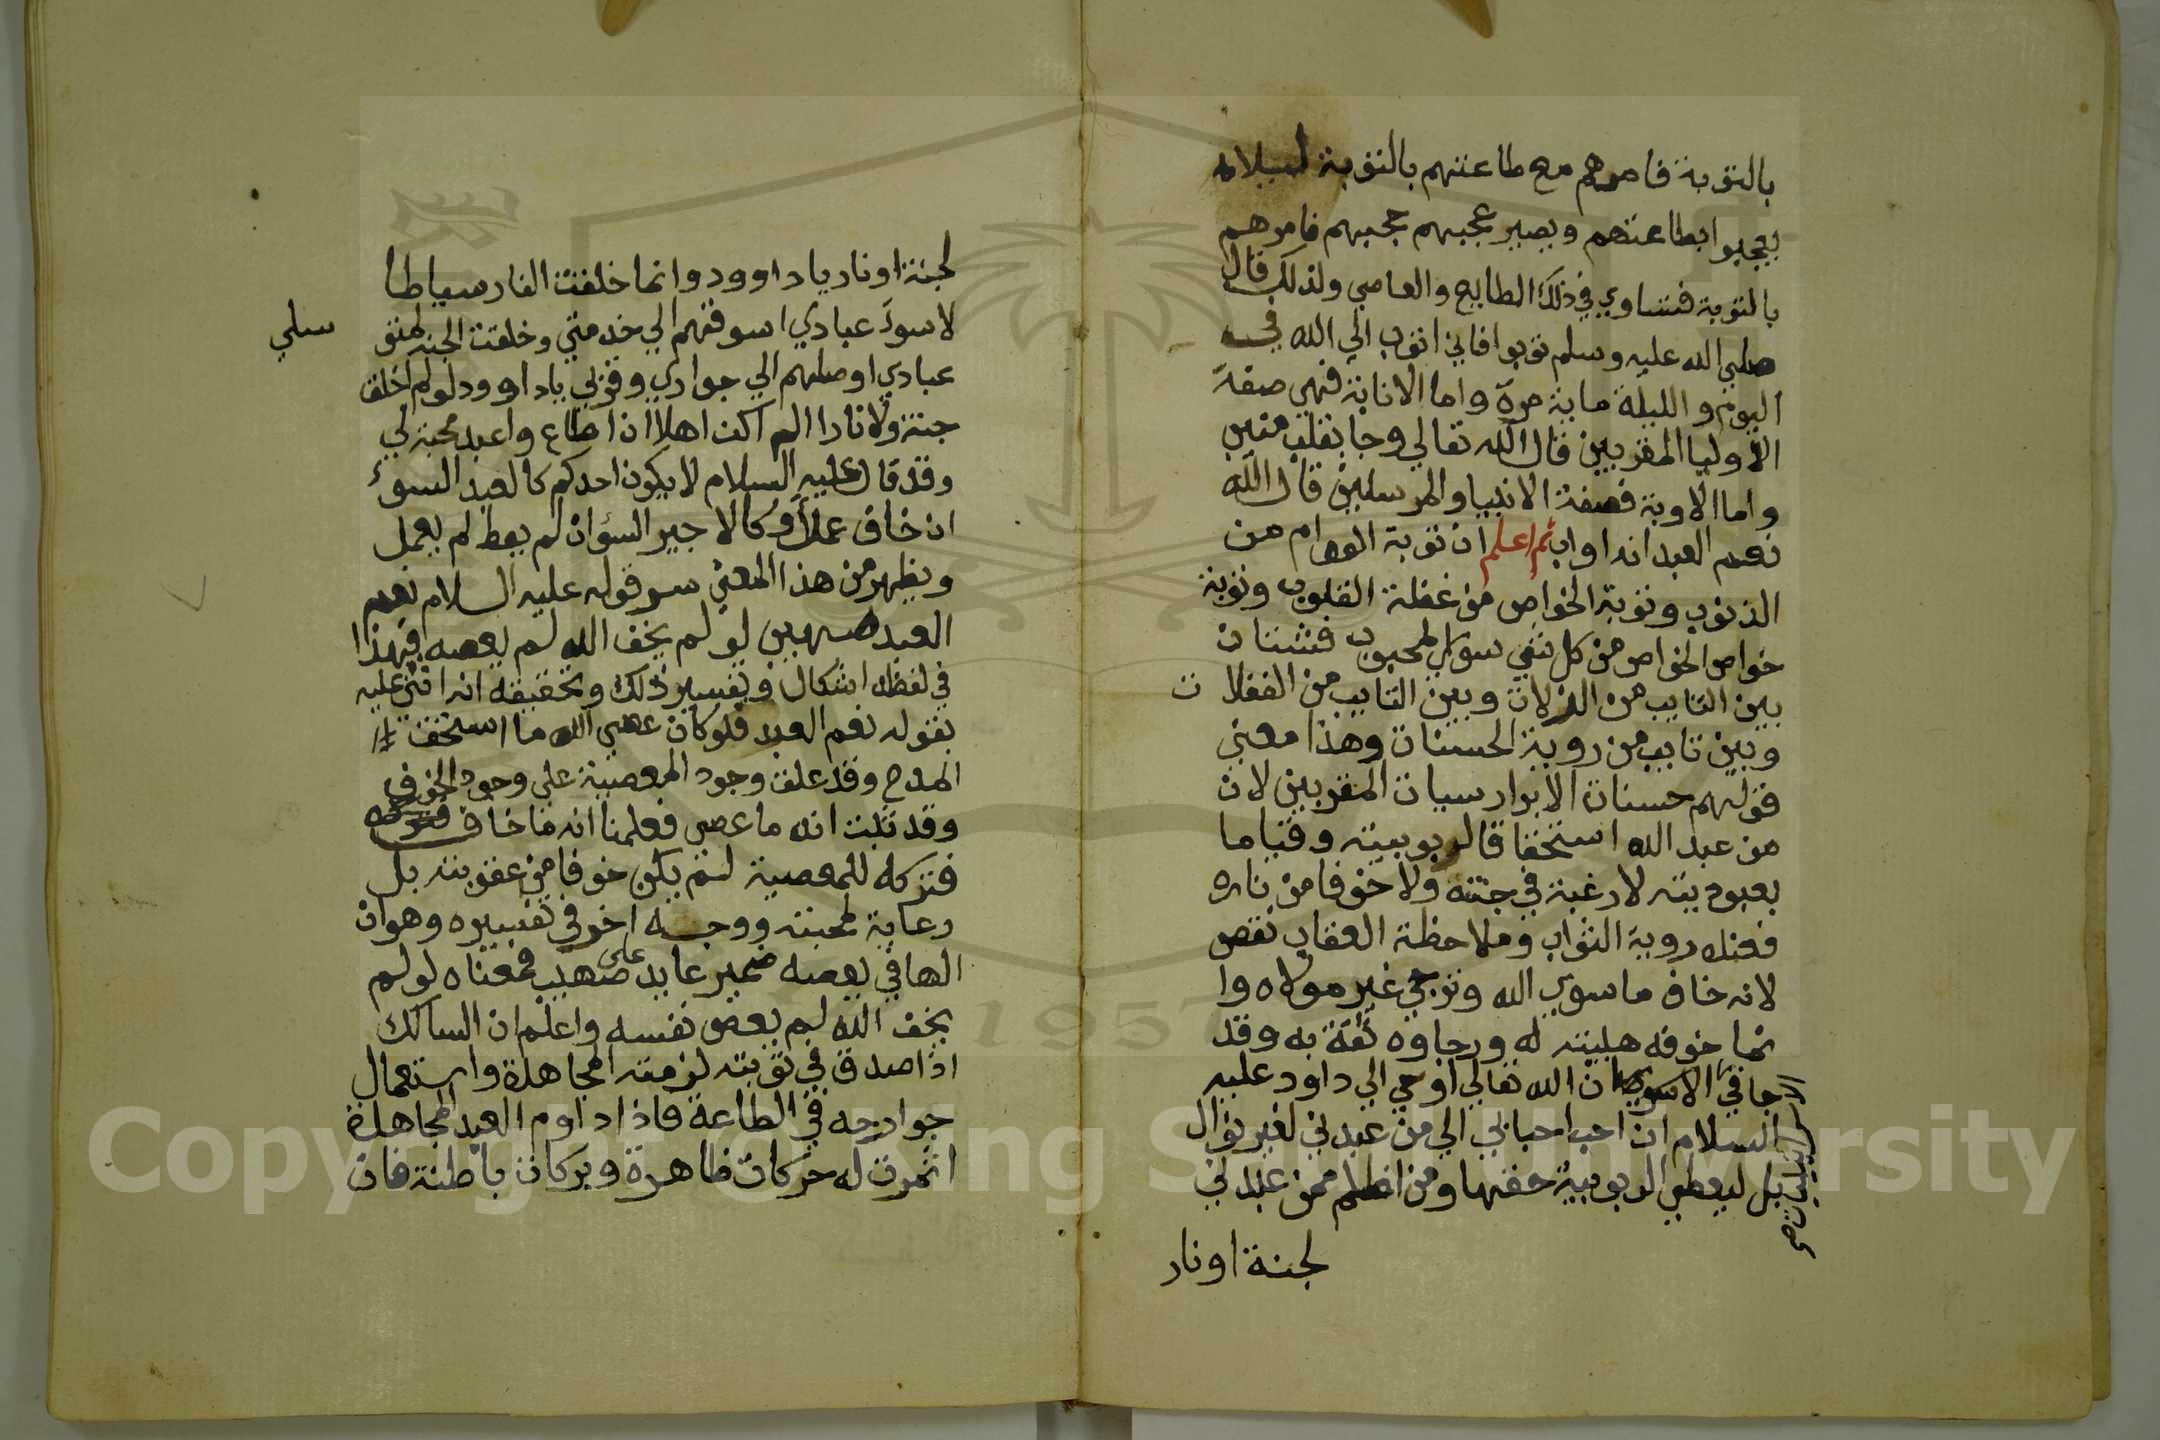 بالتوبة فامرهم مع طاعتهم بالتوبة لىلا
يعجبوا بطاعتهم ويصير عجبهم حجبهم فامرهم
بالتوبة فتساوي في ذلك الطايع والعاصي ولذلك قال
صلي الله عليه وسلم توبوا فاني اتوب الي الله في
اليوم والليلة ماية مرة واما الانابة فهي صفة
الاوليا المقربين قال الله تعالي وجا بقلب منيب
واما الاوبة فصفة الانبيا والمرسلين قال الله
نعم العبد انه اواب ثم اعلم ان توبة العوام من
الذنوب وتوبة الخواص من غفلة القلوب وتوبة
خواص الخواص من كل شي سوي المحبوب فشتان
بين التايب من الزلات وبين التايب من الغفلا ت
وبين تايب من روية الحسنات وهذا معني
قولهم حسنات الابرار سيات المقربين لان
من عبد الله استحقاقا لربوبيته وقياما
بعبوديته لا رغبة في جنته ولا خوفا من ناره
فعنده روية الثواب وملاحظة العقاب نقص
لانه خاف ما سوي الله وترجي غير مولاه وا
نما خوفه هيبته له ورجاوه ثقة به وقد
جا في ان الله تعالي اوحي الي داود عليه
السلام ان احب احبابي الي من عبدني لغير نوال
بل ليعطي الربوبية حقها ومن اظلم ممن عبدني
لجنة اونار
لجنة اونار يا داوود وانما خلقت النار سياطا
لاسوء عبادي اسوقهم الي خدمتي وخلقت الجنة
سلي
عبادي اوصلهم الي جواري وقربي ياداوود لولم اخلق
جنة ولا نارا الم اكن اهلا ان اطاع واعبد محبة لي
وقد قال عليه السلام لا يكون احدكم كالعبد السوء
ان خاف عمل او كالاجير السؤان لم يعط لم يعمل
ويظهر من هذا المعني سر قوله عليه السلام نعم
العبد صهيب لو لم يخف الله لم يعصه فهذا
في لفظه اشكال وتفسير ذلك وتحقيقه انه اثني عليه
بقوله نعم العبد فلو كان عصي الله ما استحق
المدح وقد علق وجود المعصية علي وجود الخوف
وقد ثبت انه ما عصي فعلمنا انه ما خاف
فتركه للمعصية لم يكن خوفا من عقوبته بل
رعاية لمحبته ووجه اخر في تفسيره وهو ان
الها في يعصه ضمير عايد على صهيب فمعناه لو لم
يخف الله لم يعص نفسه واعلم ان السالك
اذا صدق في توبته لزمته المجاهدة واستعمال
جوارحه في الطاعة فاذا داوم العبد المجاهدة
اثمرت له حركات ظاهرة وبركات باطنة فان
1957
Copyright © King Saud University